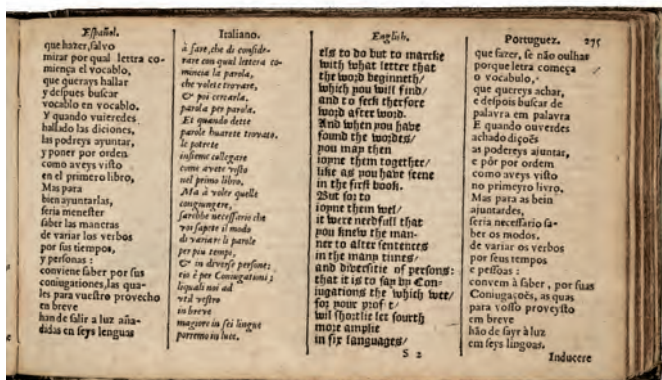 Español.
que hazer, salvo
mirar por qual lettra co-
miença el vocablo,
que querays hallar
y despues buscar
vocablo en vocablo.
Y quando vuieredes
hallado las diciones,
las podreys ayuntar,
y poner por orden
como aveys visto
en el primero libro,
Mas para
bien ayuntarlas,
seria menester
saber las maneras
de variar los verbos
por sus tiempos,
y personas :
conviene saber por sus
coniugationes, las qua-
les para vuestro provecho
en breve
han de salir a luz aña-
didas en seys lenguas
Italiano.
à fare, che di conside-
rare con qual lettera co-
mincia la parola,
che volete trovare,
& poi cercarla,
parola per parola.
Et quando dette
parole havrete trovato,
le potrete
insieme collegare
come avete visto
nel primo libro,
Ma à voler quelle
congiungere,
sarebbe necessario che
voi sapete il modo
di variare li parole
per piu tempi,
& in diverse persone;
cio è per Coniugationi;
liquali noi ad
util vestro
in breve
magiore in sei lingue
porremo in luce.
English.
els to do but to marcke
with what letter that
the word beginneth/
which you will find/
and to seek therfore
word after word.
And when you have
found the wordes/
you may then
ioyne them together/
like as you have seene
in the first book.
But for to
ioyne them wel/
it were needfull that
you knew the man-
ner to alter sentences
in the many times/
and diversitie of persons:
that it is to say by Con-
iugations the which wee/
for your profit/
wil shortlie let fourth
more amplie
in six languages/
S 2
Portuguez. 275
que fazer, se não oulhar
porque letra começa
o vocabulo,
que quereys achar,
e despois buscar de
palavra em palavra
E quando ouverdes
achado diçoẽs
as podereys aiuntar,
e pôr por ordem
como aveys visto
no primeyro livro,
Mas para as bein
ajuntardes,
seria necessario sa-
ber os modos.
de variar os verbos
por seus tempos
e pessoas :
convem à saber, por suas
Coniugaçoẽs, as quas
para vosso proveyto
em breve
hão de sayr à luz
em seys linguas.
Inducere